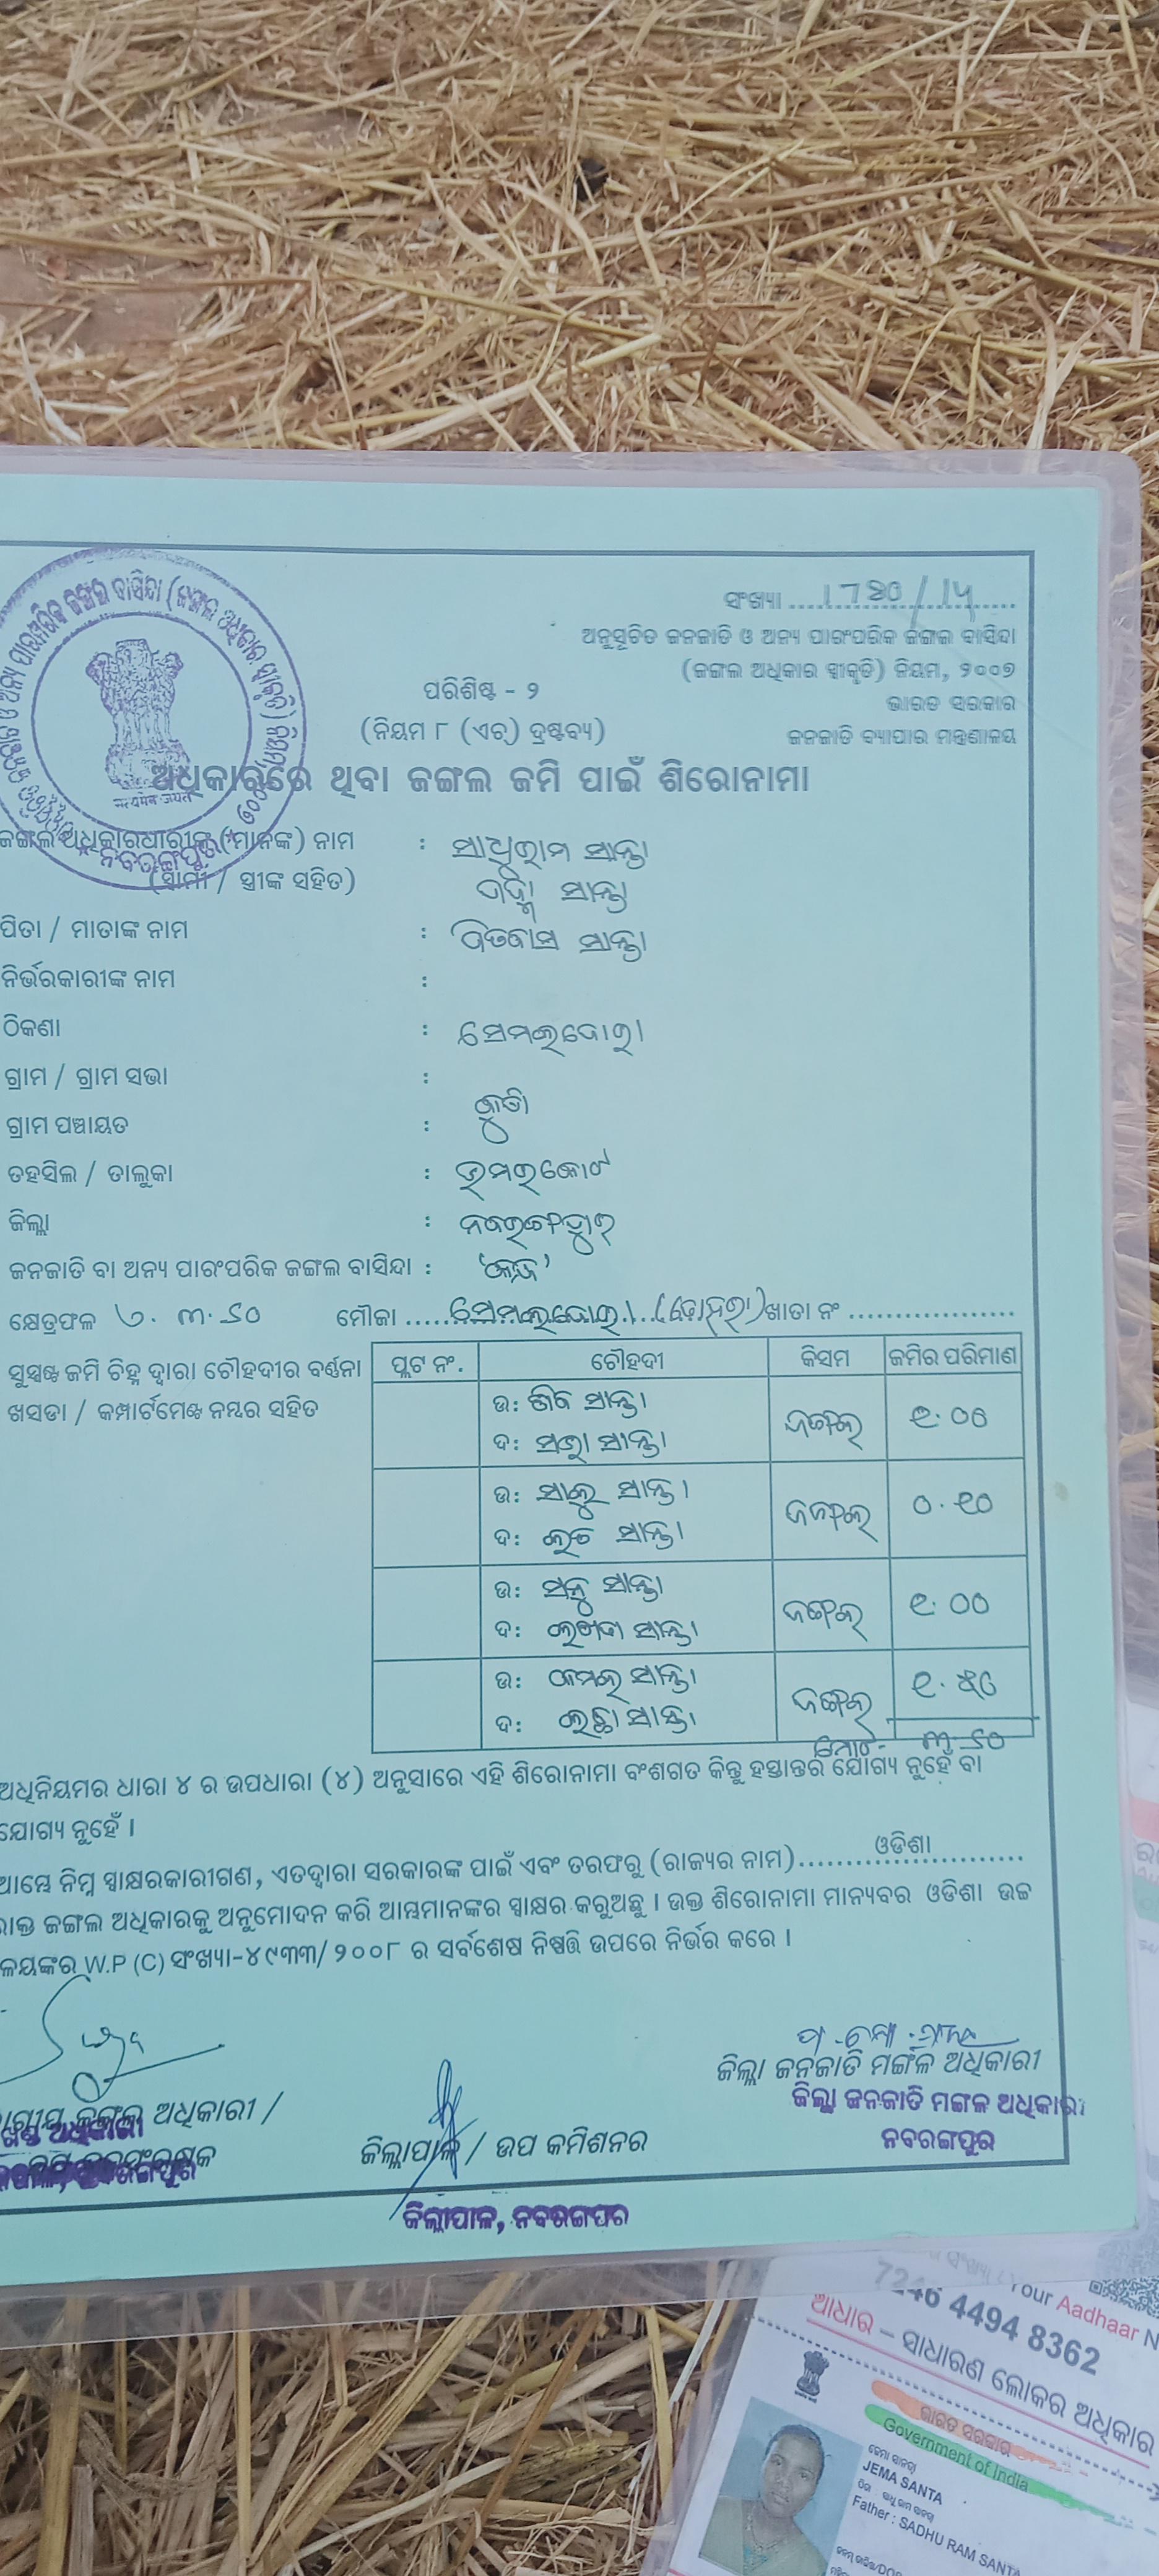 ସଂଖ୍ୟା ୧୭୫୦/୧୪
ଅନୁସୂଚିତ ଜନଜାତି ଓ ଅନ୍ୟ ପାରଂପରିକ ଜଙ୍ଗଲ ବାସିନ୍ଦା
(ଜଙ୍ଗଲ ଅଧିକାର ସ୍ୱୀକୃତି) ନିୟମ, ୨୦୦୭
ଭାରତ ସରକାର
ଜନଜାତି ବ୍ୟାପାର ମନ୍ତ୍ରଣାଳୟ
ପରିଶିଷ୍ଟ - ୨
(ନିୟମ ୮ (ଏଚ୍) ଦ୍ରଷ୍ଟବ୍ୟ)
सत्यमेव जयते
ନବରଙ୍ଗପୁର
ଅଧିକାରରେ ଥିବା ଜଙ୍ଗଲ ଜମି ପାଇଁ ଶିରୋନାମା
ଜଙ୍ଗଲ ଅଧିକାରଧାରୀଙ୍କ (ମାନଙ୍କ) ନାମ : ସାଧୁରାମ ସାନ୍ତା
(ସ୍ୱାମୀ / ସ୍ତ୍ରୀଙ୍କ ସହିତ) ପଦ୍ମା ସାନ୍ତା
ପିତା / ମାତାଙ୍କ ନାମ : ପିତବାସ ସାନ୍ତା
ନିର୍ଭରକାରୀଙ୍କ ନାମ :
ଠିକଣା : ସେମଲଦୋରା
ଗ୍ରାମ / ଗ୍ରାମ ସଭା :
ଗ୍ରାମ ପଞ୍ଚାୟତ :
ତହସିଲ / ତାଲୁକା : ଉମରକୋଟ
ଜିଲ୍ଲା : ନବରଙ୍ଗପୁର
ଜନଜାତି ବା ଅନ୍ୟ ପାରଂପରିକ ଜଙ୍ଗଲ ବାସିନ୍ଦା :
କ୍ଷେତ୍ରଫଳ ୩.୬୦ ମୌଜା ସେମଲଦୋରା ଖାତା ନଂ
ସୁସ୍ପଷ୍ଟ ଜମି ଚିହ୍ନ ଦ୍ୱାରା ଚୌହଦୀର ବର୍ଣ୍ଣନା
ଖସଡା / କମ୍ପାର୍ଟମେଣ୍ଟ ନମ୍ବର ସହିତ
ପ୍ଲଟ ନଂ. ଚୌହଦୀ କିସମ ଜମିର ପରିମାଣ
ଉ: ଶିବ ସାନ୍ତା
ଦ: ସାନ୍ତା ଜଙ୍ଗଲ ୧.୦୦
ଉ: ସାନ୍ତା
ଦ: ସାନ୍ତା ଜଙ୍ଗଲ ୦.୧୦
ଉ: ସାନ୍ତା
ଦ: ସାନ୍ତା ଜଙ୍ଗଲ ୧.୦୦
ଉ: କମଲ ସାନ୍ତା
ଦ: ଲେଛା ସାନ୍ତା ଜଙ୍ଗଲ ୧.୫୦
ମୋଟ- ୩.୬୦
ଅଧିନିୟମର ଧାରା ୪ ର ଉପଧାରା (୪) ଅନୁସାରେ ଏହି ଶିରୋନାମା ବଂଶଗତ କିନ୍ତୁ ହସ୍ତାନ୍ତର ଯୋଗ୍ୟ ନୁହେଁ ବା
ଯୋଗ୍ୟ ନୁହେଁ ।
ଆମ୍ଭେ ନିମ୍ନ ସ୍ୱାକ୍ଷରକାରୀଗଣ, ଏତଦ୍ୱାରା ସରକାରଙ୍କ ପାଇଁ ଏବଂ ତରଫରୁ (ରାଜ୍ୟର ନାମ) ଓଡିଶା
ଜଙ୍ଗଲ ଅଧିକାରକୁ ଅନୁମୋଦନ କରି ଆମ୍ଭମାନଙ୍କର ସ୍ୱାକ୍ଷର କରୁଅଛୁ । ଉକ୍ତ ଶିରୋନାମା ମାନ୍ୟବର ଓଡିଶା ଉଚ୍ଚ
ଳୟଙ୍କର W.P (C) ସଂଖ୍ୟା-୪୯୩୩/ ୨୦୦୮ ର ସର୍ବଶେଷ ନିଷ୍ପତ୍ତି ଉପରେ ନିର୍ଭର କରେ ।
ଜିଲ୍ଲା ଜନଜାତି ମଙ୍ଗଳ ଅଧିକାରୀ
ଜିଲ୍ଲା ଜନଜାତି ମଙ୍ଗଳ ଅଧିକାରୀ
ନବରଙ୍ଗପୁର
ଜଙ୍ଗଲ ଅଧିକାରୀ /
ଜିଲ୍ଲାପାଳ / ଉପ କମିଶନର
ଜିଲ୍ଲାପାଳ, ନବରଙ୍ଗପୁର
Your Aadhaar N
7246 4494 8362
ଆଧାର – ସାଧାରଣ ଲୋକର ଅଧିକାର
ଭାରତ ସରକାର
Government of India
ଜେମା ସାନ୍ତା
JEMA SANTA
Father : SADHU RAM SANTA